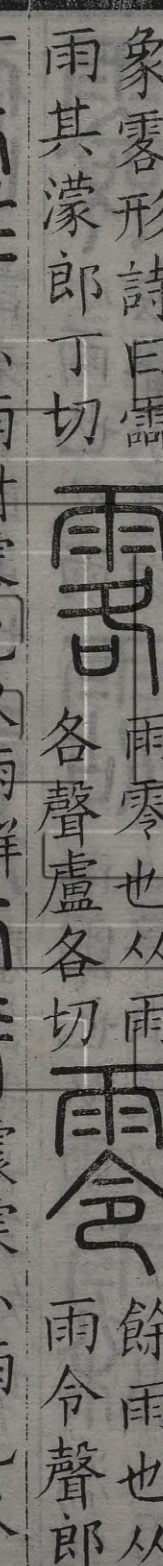 象䨩形詩曰霝
雨其濛郎丁切
䨩
雨零也从雨
各聲盧各切
零
餘雨也从
雨令聲郎